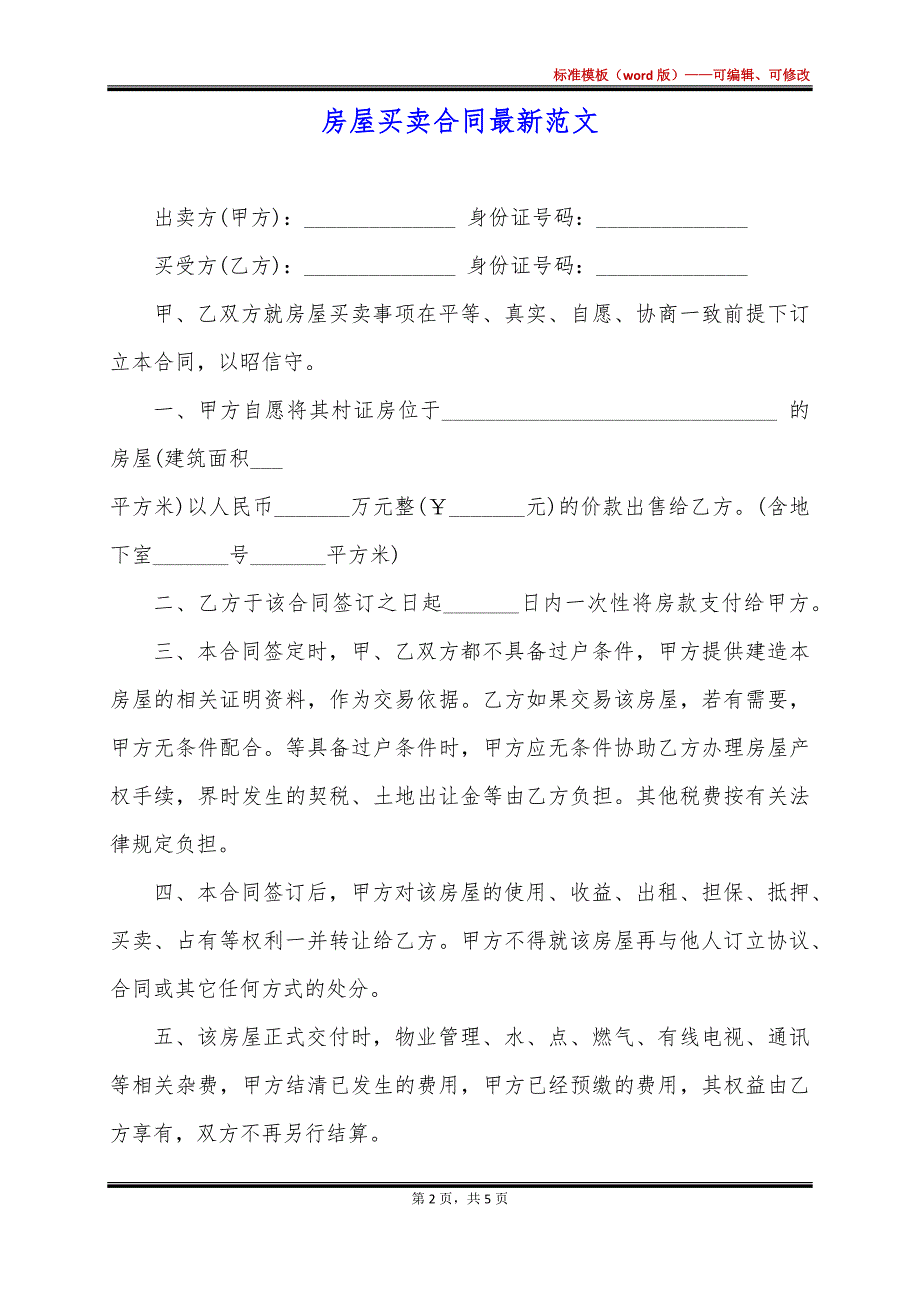 标准模板（word 版）——可编辑、可修改
房屋买卖合同最新范文
出卖方(甲方)：______________ 身份证号码：______________
买受方(乙方)：______________ 身份证号码：______________
甲、乙双方就房屋买卖事项在平等、真实、自愿、协商一致前提下订
立本合同，以昭信守。
一、甲方自愿将其村证房位于_______________________________ 的
房屋(建筑面积___
平方米)以人民币_______万元整(￥_______元)的价款出售给乙方。(含地
下室_______号_______平方米)
二、乙方于该合同签订之日起_______日内一次性将房款支付给甲方。
三、本合同签定时，甲、乙双方都不具备过户条件，甲方提供建造本
房屋的相关证明资料，作为交易依据。乙方如果交易该房屋，若有需要，
甲方无条件配合。等具备过户条件时，甲方应无条件协助乙方办理房屋产
权手续，界时发生的契税、土地出让金等由乙方负担。其他税费按有关法
律规定负担。
四、本合同签订后，甲方对该房屋的使用、收益、出租、担保、抵押、
买卖、占有等权利一并转让给乙方。甲方不得就该房屋再与他人订立协议、
合同或其它任何方式的处分。
五、该房屋正式交付时，物业管理、水、点、燃气、有线电视、通讯
等相关杂费，甲方结清已发生的费用，甲方已经预缴的费用，其权益由乙
方享有，双方不再另行结算。
第 2 页，共 5 页